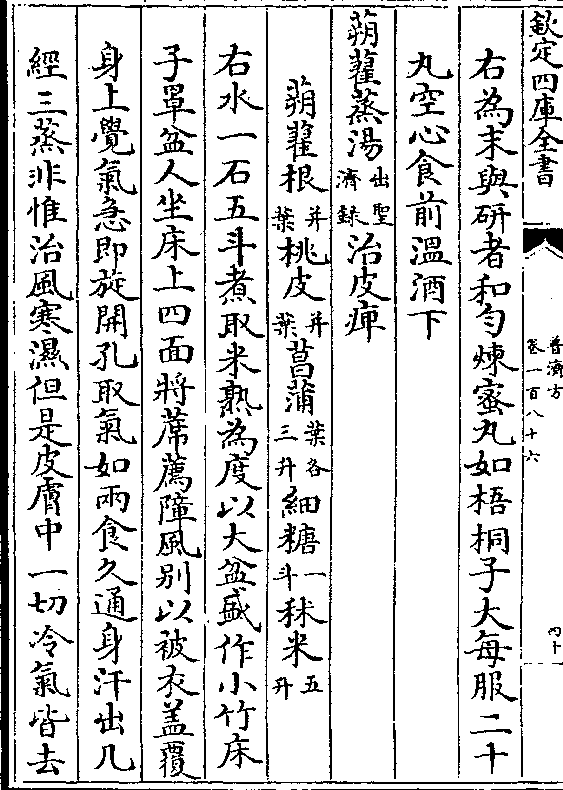 欽定四庫全書
普濟方
卷一百八十六
四十
右為末與研者和勻煉蜜丸如梧桐子大每服二十
丸空心食前溫酒下
蒴藋蒸湯出聖濟錄治皮痺
蒴藋根并葉桃皮并葉菖蒲葉各三升細糖一斗秫米五升
右水一石五斗煮取米熟為度以大盆盛作小竹床
子罩盆人坐床上四面將蓆薦障風别以被衣盖覆
身上覺氣急即旋開孔取氣如兩食久通身汗出凡
經三蒸非惟治風寒濕但是皮膚中一切冷氣皆去